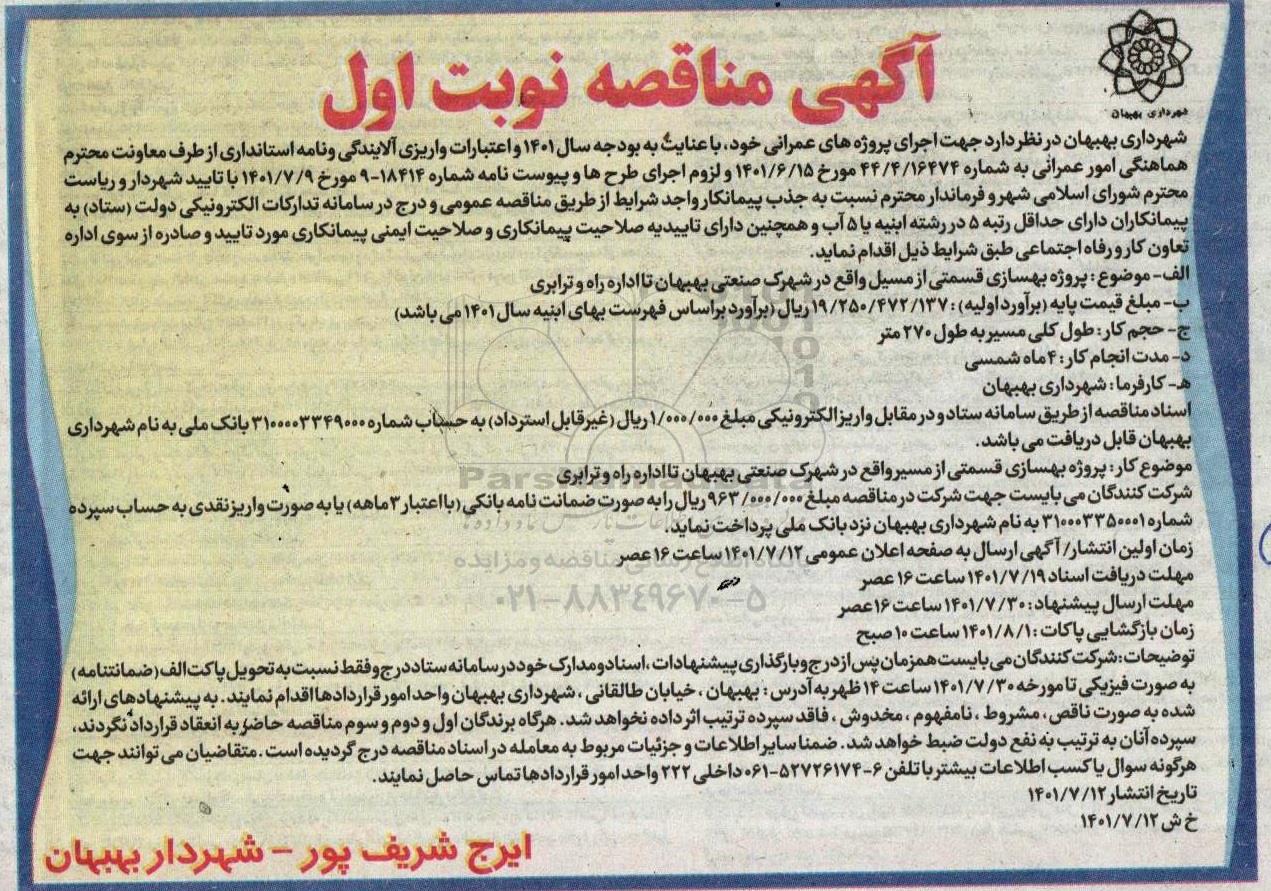 شهرداری بهبهان
آگهی مناقصه نوبت اول
شهرداری بهبهان در نظر دارد جهت اجرای پروژه های عمرانی خود، با عنایت به بودجه سال ۱۴۰۱ و اعتبارات واریزی آلایندگی ونامه استانداری از طرف معاونت محترم
هماهنگی امور عمرانی به شماره ۴۴/۴/۱۶۴۷۴ مورخ ۱۴۰۱/۶/۱۵ و لزوم اجرای طرح ها و پیوست نامه شماره ۱۸۴۱۴-۹ مورخ ۱۴۰۱/۷/۹ با تایید شهردار و ریاست
محترم شورای اسلامی شهر و فرماندار محترم نسبت به جذب پیمانکار واجد شرایط از طریق مناقصه عمومی و درج در سامانه تدارکات الکترونیکی دولت (ستاد) به
پیمانکاران دارای حداقل رتبه ۵ در رشته ابنیه یا ۵ آب و همچنین دارای تاییدیه صلاحیت پیمانکاری و صلاحیت ایمنی پیمانکاری مورد تایید و صادره از سوی اداره
تعاون کار و رفاه اجتماعی طبق شرایط ذیل اقدام نماید.
الف- موضوع : پروژه بهسازی قسمتی از مسیل واقع در شهرک صنعتی بهبهان تا اداره راه و ترابری
ب- مبلغ قیمت پایه (برآورد اولیه) : ۱۹/۲۵۰/۴۷۲/۱۳۷ ریال (برآورد براساس فهرست بهای ابنیه سال ۱۴۰۱ می باشد)
ج- حجم کار: طول کلی مسیر به طول ۲۷۰ متر
د- مدت انجام کار: ۴ ماه شمسی
هـ- کارفرما: شهرداری بهبهان
اسناد مناقصه از طریق سامانه ستاد و در مقابل واریز الکترونیکی مبلغ ۱/۰۰۰/۰۰۰ ریال (غیرقابل استرداد) به حساب شماره ۳۱۰۰۰۰۳۳۴۹۰۰۰ بانک ملی به نام شهرداری
بهبهان قابل دریافت می باشد.
موضوع کار: پروژه بهسازی قسمتی از مسیر واقع در شهرک صنعتی بهبهان تا اداره راه و ترابری
شرکت کنندگان می بایست جهت شرکت در مناقصه مبلغ ۹۶۳/۰۰۰/۰۰۰ ریال را به صورت ضمانت نامه بانکی (با اعتبار ۳ ماهه) یا به صورت واریز نقدی به حساب سپرده
شماره ۳۱۰۰۰۳۳۵۰۰۰۱ به نام شهرداری بهبهان نزد بانک ملی پرداخت نماید.
زمان اولین انتشار/ آگهی ارسال به صفحه اعلان عمومی ۱۴۰۱/۷/۱۲ ساعت ۱۶ عصر
مهلت دریافت اسناد ۱۴۰۱/۷/۱۹ ساعت ۱۶ عصر
مهلت ارسال پیشنهاد: ۱۴۰۱/۷/۳۰ ساعت ۱۶ عصر
زمان بازگشایی پاکات : ۱۴۰۱/۸/۱ ساعت ۱۰ صبح
توضیحات : شرکت کنندگان می بایست همزمان پس از درج و بارگذاری پیشنهادات ، اسناد و مدارک خود در سامانه ستاد درج و فقط نسبت به تحویل پاکت الف (ضمانتنامه)
به صورت فیزیکی تا مورخه ۱۴۰۱/۷/۳۰ ساعت ۱۴ ظهر به آدرس : بهبهان ، خیابان طالقانی ، شهرداری بهبهان واحد امور قراردادها اقدام نمایند. به پیشنهادهای ارائه
شده به صورت ناقص، مشروط ، نامفهوم ، مخدوش ، فاقد سپرده ترتیب اثر داده نخواهد شد. هرگاه برندگان اول و دوم و سوم مناقصه حاضر به انعقاد قرارداد نگردند،
سپرده آنان به ترتیب به نفع دولت ضبط خواهد شد. ضمنا سایر اطلاعات و جزئیات مربوط به معامله در اسناد مناقصه درج گردیده است. متقاضیان می توانند جهت
هرگونه سوال یا کسب اطلاعات بیشتر با تلفن ۶-۵۲۷۲۶۱۷۴-۰۶۱ داخلی ۲۲۲ واحد امور قراردادها تماس حاصل نمایند.
تاریخ انتشار ۱۴۰۱/۷/۱۲
خ ش ۱۴۰۱/۷/۱۲
ایرج شریف پور - شهردار بهبهان
پایگاه اطلاع رسانی مناقصه و مزایده
۰۲۱-۸۸۳۴۹۶۷۰-۵